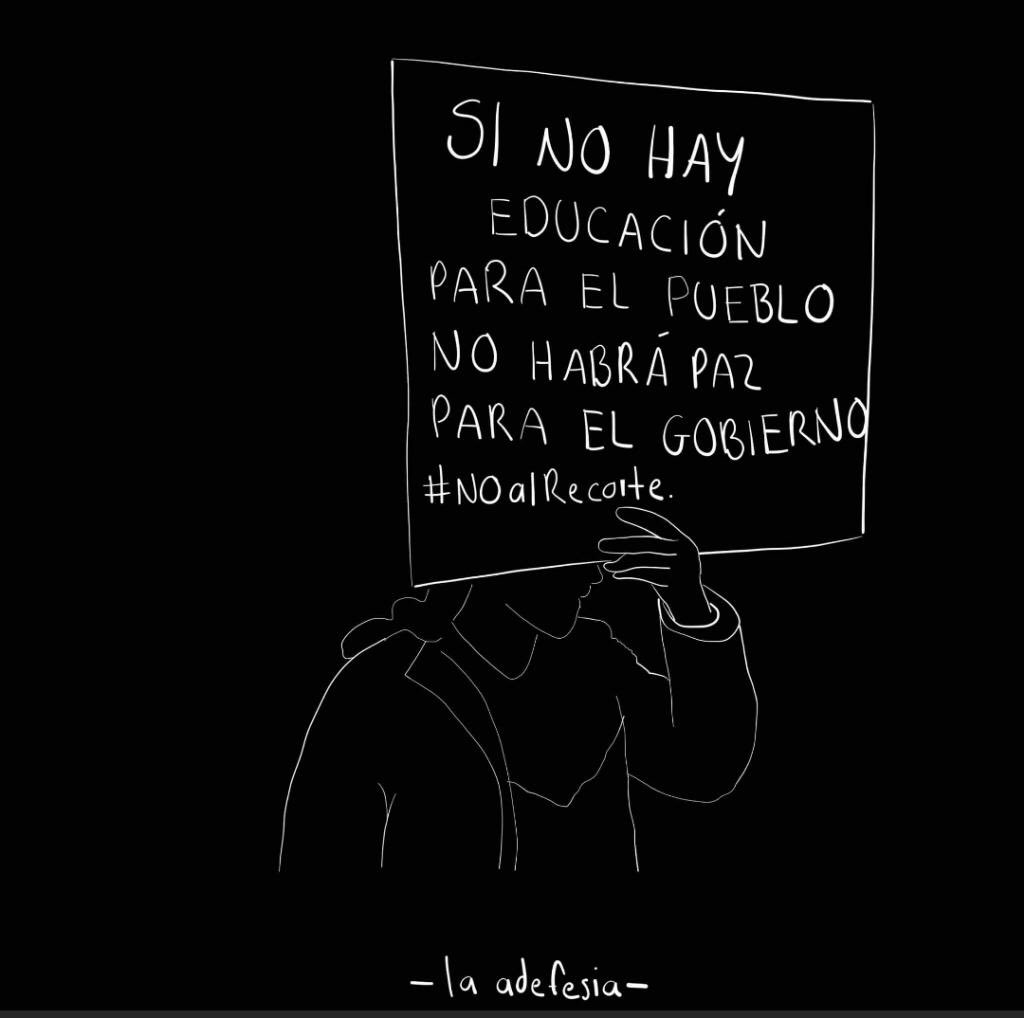 SI NO HAY
EDUCACIÓN
PARA EL PUEBLO
NO HABRÁ PAZ
PARA EL GOBIERNO
#NOalRecorte.
-la adefesia-